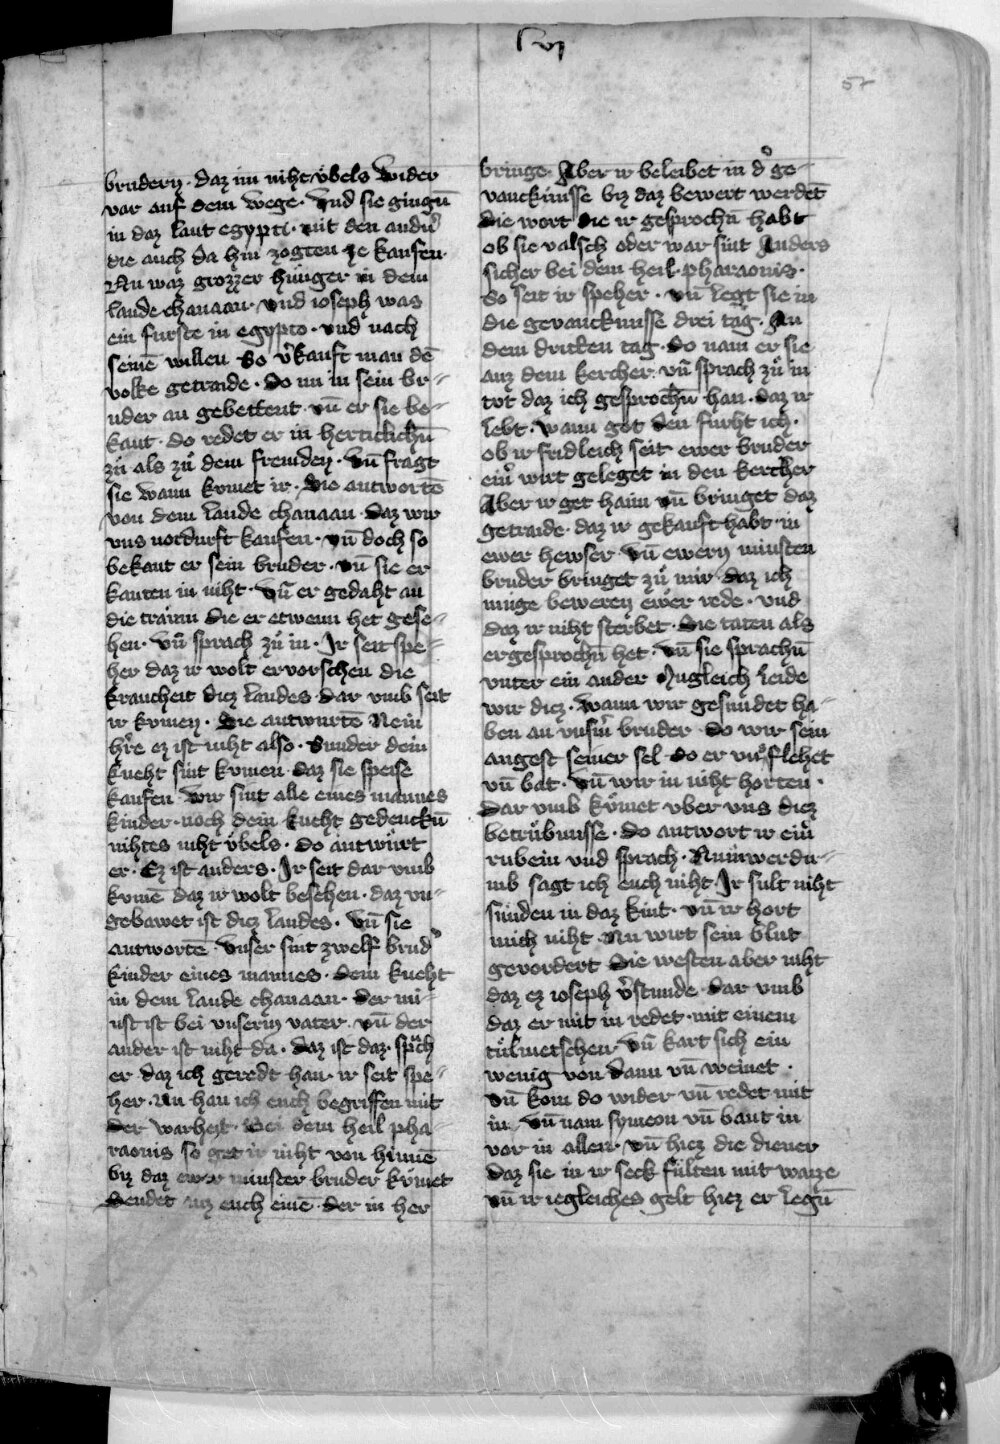 lvi
57
brudern · daz im niht v̈bels wider
var auf dem wege · vnd sie gingen̄
in daz lant egypti · mit den andn̄
die auch da hin zogten ze kaufen ·
Nu waz grozzer hunger in dem
lande chanaan · vnd ioseph was
ein furste in egypto · vnd nach
seinē willen So v̓kauft man dē
volke getraide · do im in sein br-
uder an gebettent · vn̄ er sie be-
kant · do redet er in herticlichn̄
zu als zu̇ dem fremden · vn̄ fragt
sie wann kvmet ir · Die antwortē
von dem lande chanaan · daz wir
vns notdurft kaufen · vn̄ doch so
bekant er sein bruder · vn̄ sie er
kanten in niht · vn̄ er gedaht an
die traum die er etwenn het gese-
hen · vn̄ sprach zu̇ in · Ir seit spe-
her daz ir wolt ervorschen die
krancheit dicz landes dar vmb seit
ir kvmen · Die antwurtē Nein
hr̄e ez ist niht also · Sunder dein
kneht sint kvmen daz sie speise
kaufen wir sint alle eines mannes
kinder · noch dein kneht gedenckn̄
nihtes niht v̈bels · do antwu̇rt
er · Ez ist anders · Ir seit dar vmb
kvmē daz ir wolt besehen · daz vn-
gebawet ist dicz landes · vn̄ sie
antwortē · vnser sint zwelf brud̓
kinder eines mannes · dein kneht
in dem lande chanaan · der mi-
nst ist bei vnserm vater · vn̄ der
ander ist niht da · daz ist daz · sprach
er daz ich geredt han · ir seit spe-
her · Nu han ich euch begriffen mit
der warheyt · Bei dem heil pha-
raonis so get ir niht von hinnē
biz daz ewer minster bruder kv̇met
Sendet auz euch einē · der in her
bringe · Aber ir beleibet in d̓ ge-
vancknu̇sse biz daz bewert werdēt
die wort die ir gesprochn̄ habt
ob sie valsch oder war sint Anders
sicher bei dem heil · pharaonis ·
So seit ir speher · vn̄ legt sie in
die gevancknusse drei tag · An
dem dritten tag · do nam er sie
auz dem kercher · vn̄ sprach zu̇ in
tvt daz ich gesprochn̄ han · daz ir
lebt · wann got den fu̇rht ich ·
ob ir fridleich seit ewer bruder
ein̓ wirt geleget in den kercher
Aber ir get haim vn̄ bringet daz
getraide · daz ir gekauft habt · in
ewer hewser · vn̄ ewern minsten
bruder bringet zu̇ mir · daz ich
muge beweren ewer rede · vnd
daz ir niht sterbet · Die taten als
er gesprochn̄ het · vn̄ sie sprachn̄
vnter ein ander Vngleich leide
wir dicz · wann wir gesundet ha-
ben an vnsm̄ bruder · do wir sein
angest seiner sel · do er vns flehet
vn̄ bat · vn̄ wir in niht horten ·
Dar vmb kv̇met vber vns dicz
betru̇bnusse · do antwort ir ein̓
rubein vnd sprach ·
mb sagt ich euch niht · Ir sult niht
su̇nden in daz kint · vn̄ ir hort
mich niht · Nu wirt sein blut
gevordert · Die westen aber niht
daz ez ioseph v̓stunde · dar vmb
daz er mit in redet · mit einem
tu̇lmetschen · vn̄ kart sich ein
wenig von dann vn̄ weinet ·
vn̄ kom do wider vn̄ redet mit
in · vn̄ nam symeon vn̄ bant in
vor in allen · vn̄ hiez die diener
daz sie in ir seck fu̇lten mit waize
vn̄ ir iegleiches gelt hiez er legn̄